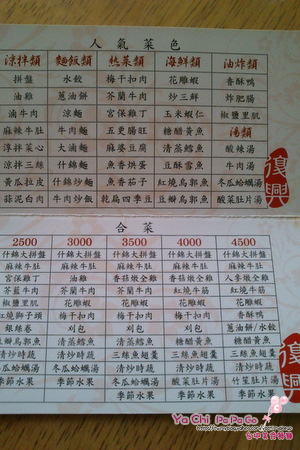 人氣菜色
涼拌類 麵飯類 熱菜類 海鮮類 油炸類
拼盤 水餃 梅干扣肉 花雕蝦 香酥鴨
油雞 蔥油餅 芥蘭牛肉 炒三鮮 炸肥腸
滷牛肉 涼麵 宮保雞丁 玉米蝦仁 椒鹽里肌
麻辣牛肚 牛肉麵 五更腸旺 糖醋黃魚 湯類
涼拌菜心 大滷麵 麻婆豆腐 清蒸鱈魚 酸辣湯
涼拌三絲 什錦炒麵 魚香烘蛋 豆酥雪魚 牛肉湯
黃瓜拉皮 什錦炒飯 魚香茄子 紅燒烏郭魚 冬瓜蛤蠣湯
蒜泥白肉 牛肉炒飯 乾扁四季豆 豆瓣烏郭魚 酸菜肚片湯
復興
合菜
2500 3000 3500 4000 4500
什錦大拼盤 什錦大拼盤 什錦大拼盤 什錦大拼盤 什錦大拼盤
麻辣牛肚 麻辣牛肚 麻辣牛肚 麻辣牛肚 麻辣牛肚
宮保雞丁 油雞 香菇燉全雞 香菇燉全雞 人參燉全雞
芥蘭牛肉 芥蘭牛肉 梅干扣肉 紅燒牛筋 紅燒牛筋
椒鹽里肌 花雕蝦 花雕蝦 花雕蝦 花雕蝦
紅燒獅子頭 梅干扣肉 刈包 刈包 蔥油餅/水餃
銀絲卷 刈包 清蒸鱈魚 糖醋黃魚 清蒸鱈魚
豆瓣烏郭魚 清蒸鱈魚 三絲魚翅羹 三絲魚翅羹 三絲魚翅羹
清炒時蔬 清炒時蔬 清炒時蔬 清炒時蔬 清炒時蔬
冬瓜蛤蠣湯 冬瓜蛤蠣湯 冬瓜蛤蠣湯 酸菜肚片湯 竹笙肚片湯
季節水果 季節水果 季節水果 季節水果 季節水果
復興
Ya Chi PaPaGo